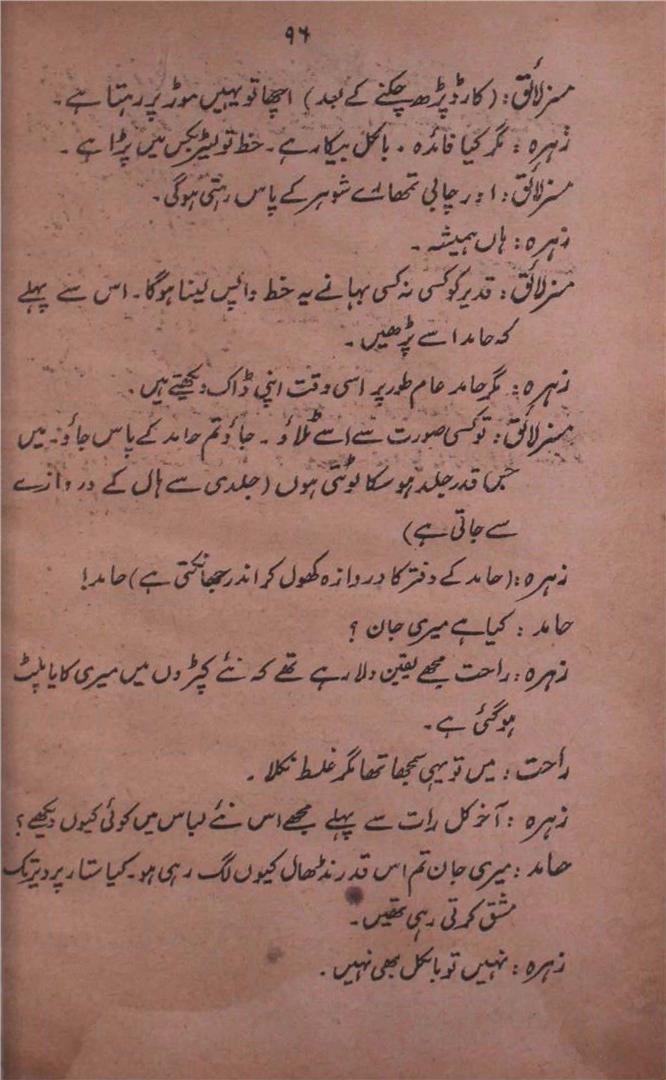 ۹۶
مسز لائق: (کارڈ پڑھ چکنے کے بعد) اچھا تو یہیں موڑ پر رہتا ہے۔
زہرہ: مگر کیا فائدہ۔ بالکل بیکار ہے۔ خط تو لیٹر بکس میں پڑا ہے۔
مسز لائق: اور چابی تمھارے شوہر کے پاس رہتی ہوگی۔
زہرہ: ہاں ہمیشہ۔
مسز لائق: قدیر کو کسی نہ کسی بہانے یہ خط واپس لینا ہوگا۔ اس سے پہلے
کہ حامد اسے پڑھیں۔
زہرہ: مگر حامد عام طور پر اسی وقت اپنی ڈاک دیکھتے ہیں۔
مسز لائق: تو کسی صورت سے اسے ٹلاؤ۔ جاؤ تم حامد کے پاس جاؤ۔ میں
جس قدر جلد ہو سکا لوٹتی ہوں (جلدی سے ہال کے دروازے
سے جاتی ہے)
زہرہ: (حامد کے دفتر کا دروازہ کھول کر اندر جھانکتی ہے) حامد!
حامد: کیا ہے میری جان؟
زہرہ: راحت مجھے یقین دلا رہے تھے کہ نئے کپڑوں میں میری کایا پلٹ
ہوگئی ہے۔
راحت: میں تو یہی سمجھا تھا مگر غلط نکلا۔
زہرہ: آخر کل رات سے پہلے مجھے اس نئے لباس میں کوئی کیوں دیکھے؟
حامد: میری جان تم اس قدر نڈھال کیوں لگ رہی ہو۔ کیا ستار پر دیر تک
مشق کرتی رہی تھیں۔
زہرہ: نہیں تو بالکل بھی نہیں۔